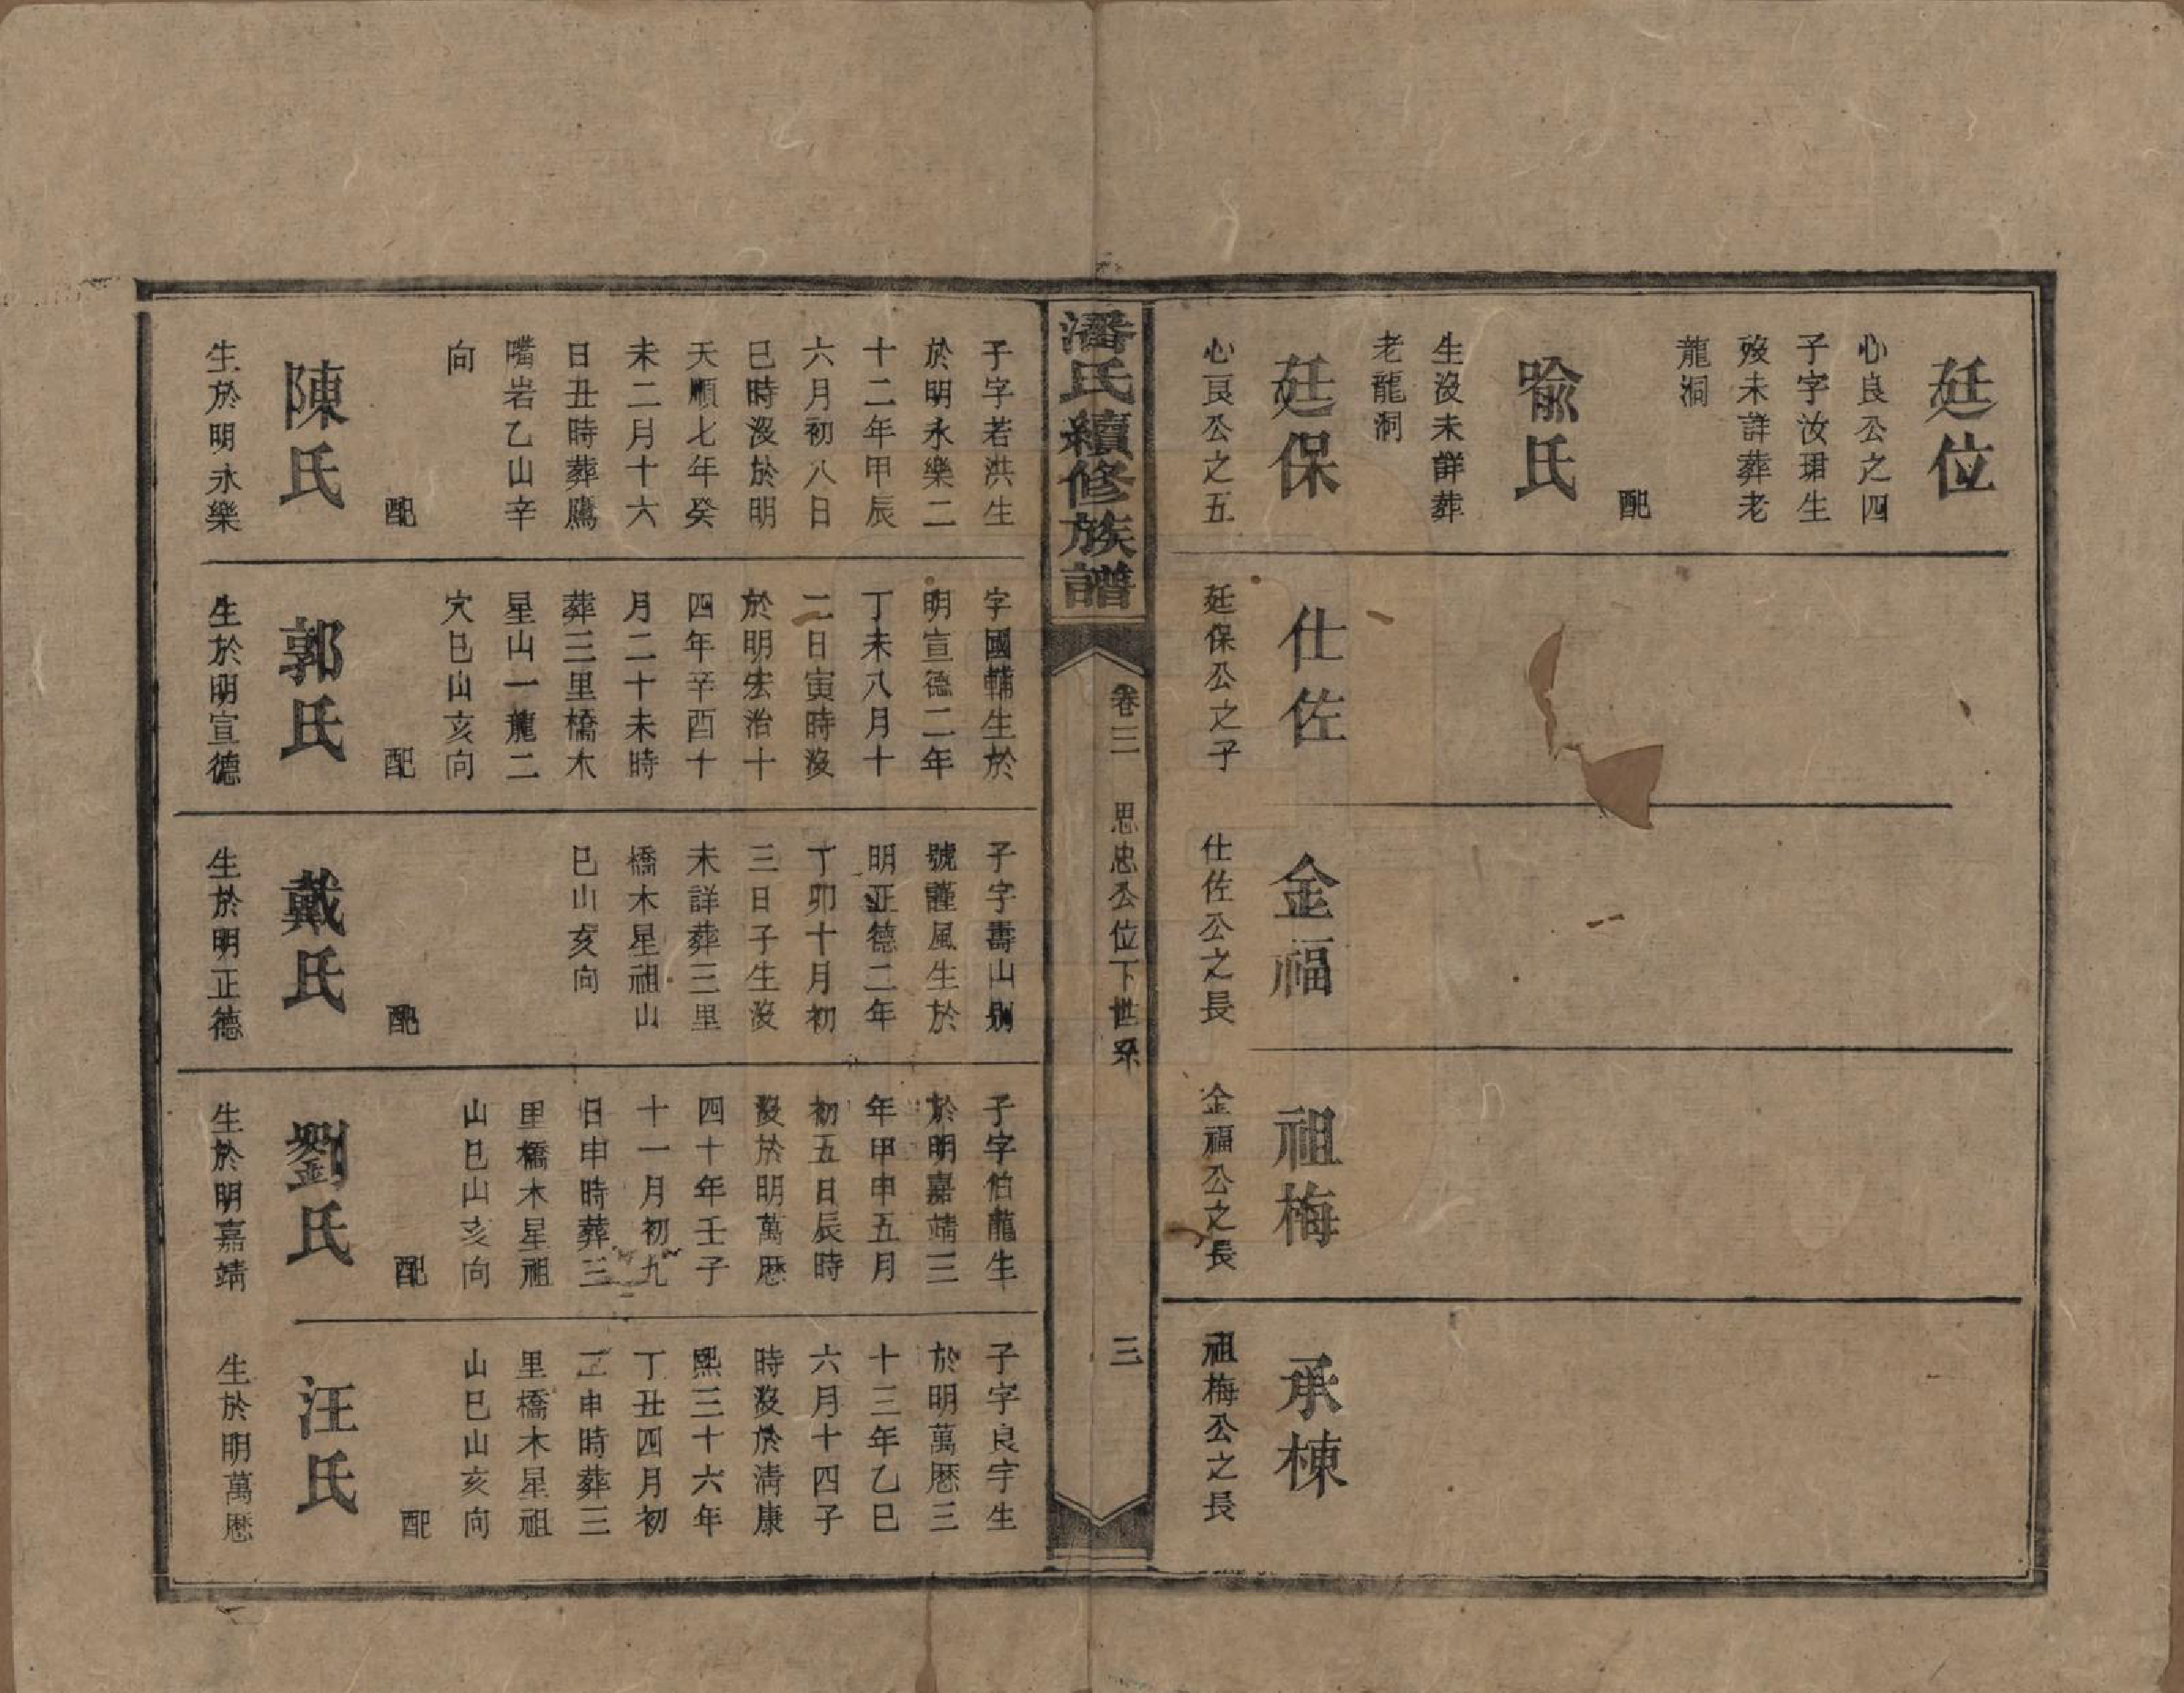 廷位
心良公之四
子字汝珺生
歿未詳葬老
龍洞
配
喩氏
生沒未詳葬
老龍洞
廷保
心良公之五
仕佐
廷保公之子
金福
仕佐公之長
祖梅
金福公之長
承棟
祖梅公之長
潘氏續修族譜
卷三
思忠公位下世系
三
子字若洪生
於明永樂二
十二年甲辰
六月初八日
巳時沒於明
天順七年癸
未二月十六
日丑時葬鷹
嘴岩乙山辛
向
配
陳氏
生於明永樂
字國輔生於
明宣德二年
丁未八月十
二日寅時沒
於明宏治十
四年辛酉十
月二十未時
葬三里橋木
星山一龍二
穴巳山亥向
配
郭氏
生於明宣德
子字壽山別
號謹風生於
明正德二年
丁卯十月初
三日子生沒
未詳葬三里
橋木星祖山
巳山亥向
配
戴氏
生於明正德
子字伯龍生
於明嘉靖三
年甲申五月
初五日辰時
沒於明萬歴
四十年壬子
十一月初九
日申時葬三
里橋木星祖
山巳山亥向
配
劉氏
生於明嘉靖
子字良宇生
於明萬歴三
十三年乙巳
六月十四子
時沒於清康
熙三十六年
丁丑四月初
二申時葬三
里橋木星祖
山巳山亥向
配
汪氏
生於明萬歴